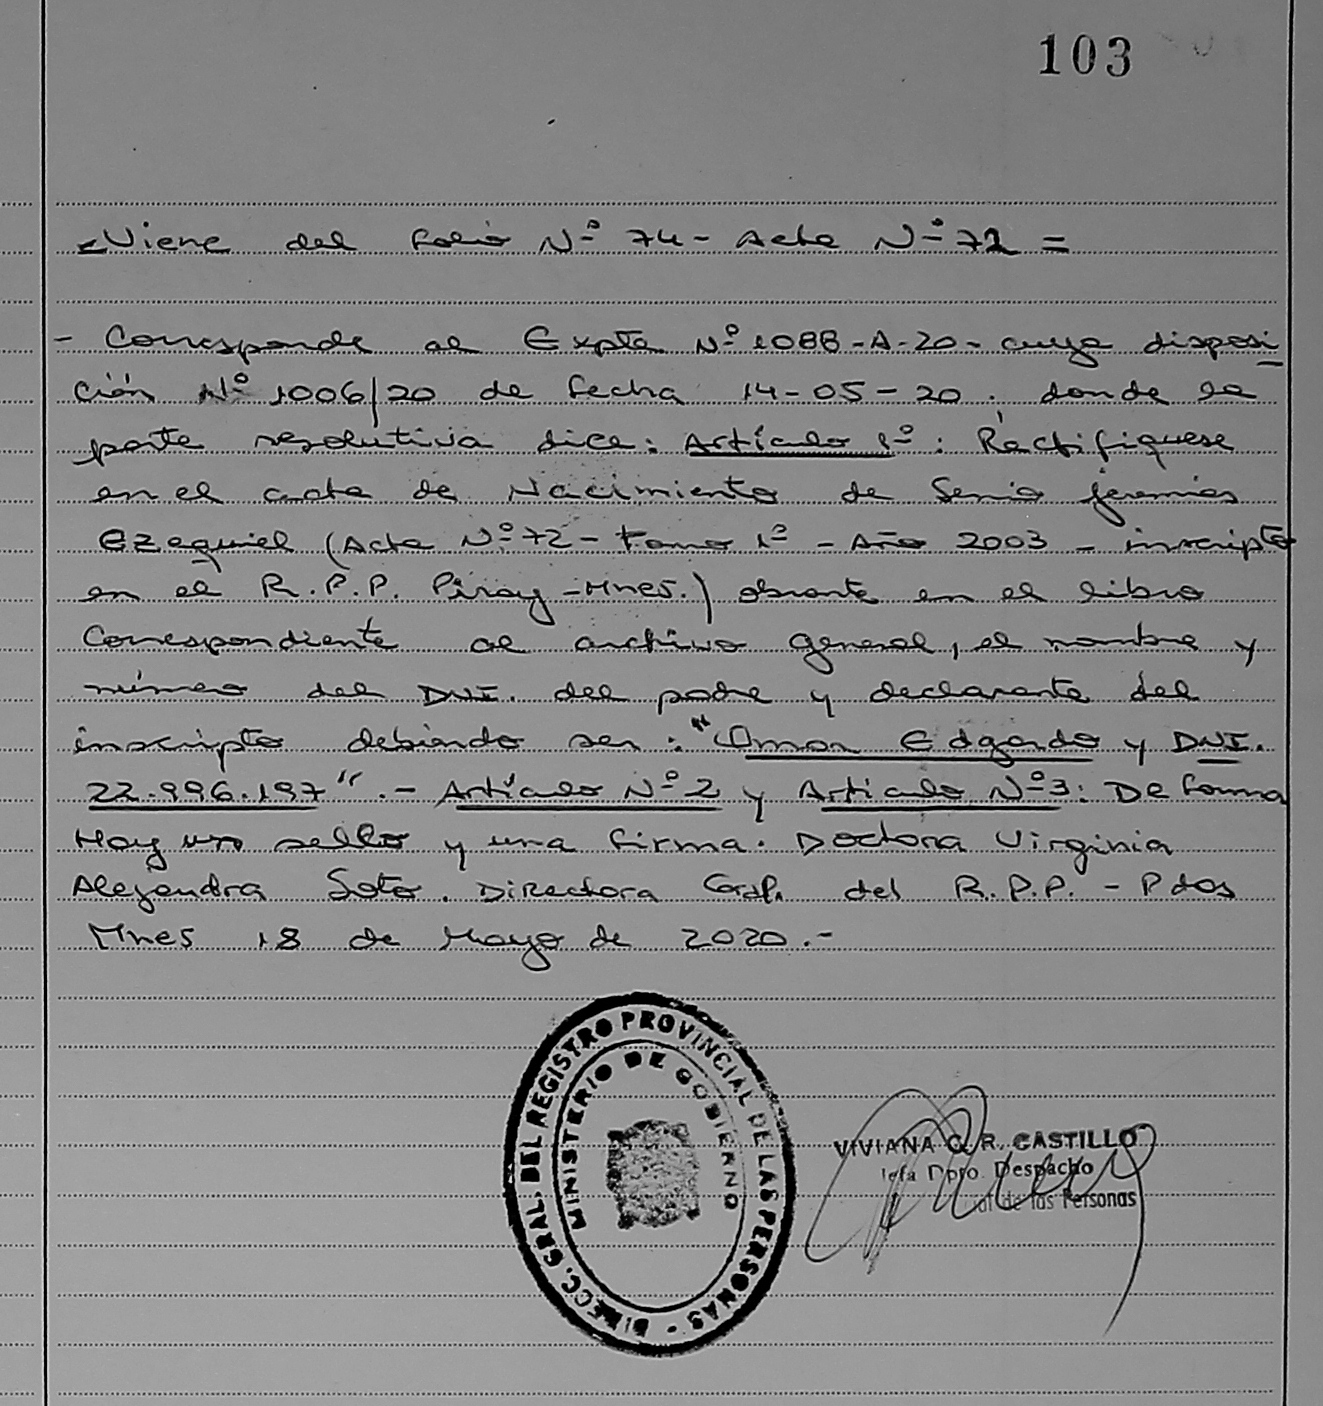 103
Viene del folio Nº 74 - Acta Nº 72 =
- Corresponde al Expte Nº 1088-A-20- cuya disposi-
ción Nº 1006/20 de fecha 14-05-20. donde la
parte resolutiva dice: Artículo 1º: Rectifiquese
en el acta de Nacimiento de Senio Jeremias
Ezequiel (Acta Nº 72 - Tomo 1º - Año 2003 - inscripto
en el R.P.P. Piray - Mnes.) obrante en el libro
Correspondiente al archivo general, el nombre y
número del DNI. del padre y declarante del
inscripto debiendo ser: "Omar Edgardo y DNI.
22.996.197". - Artículo Nº 2 y Artículo Nº 3: De forma
Hay un sello y una firma. Doctora Virginia
Alejandra Soto. Directora Gral. del R.P.P. - Pdas
Mnes 18 de Mayo de 2020.-
DIRECC. GRAL. DEL REGISTRO PROVINCIAL DE LAS PERSONAS -
MINISTERIO DE GOBIERNO
VIVIANA C. R. CASTILLO
Jefa Dpto. Despacho
de las Personas